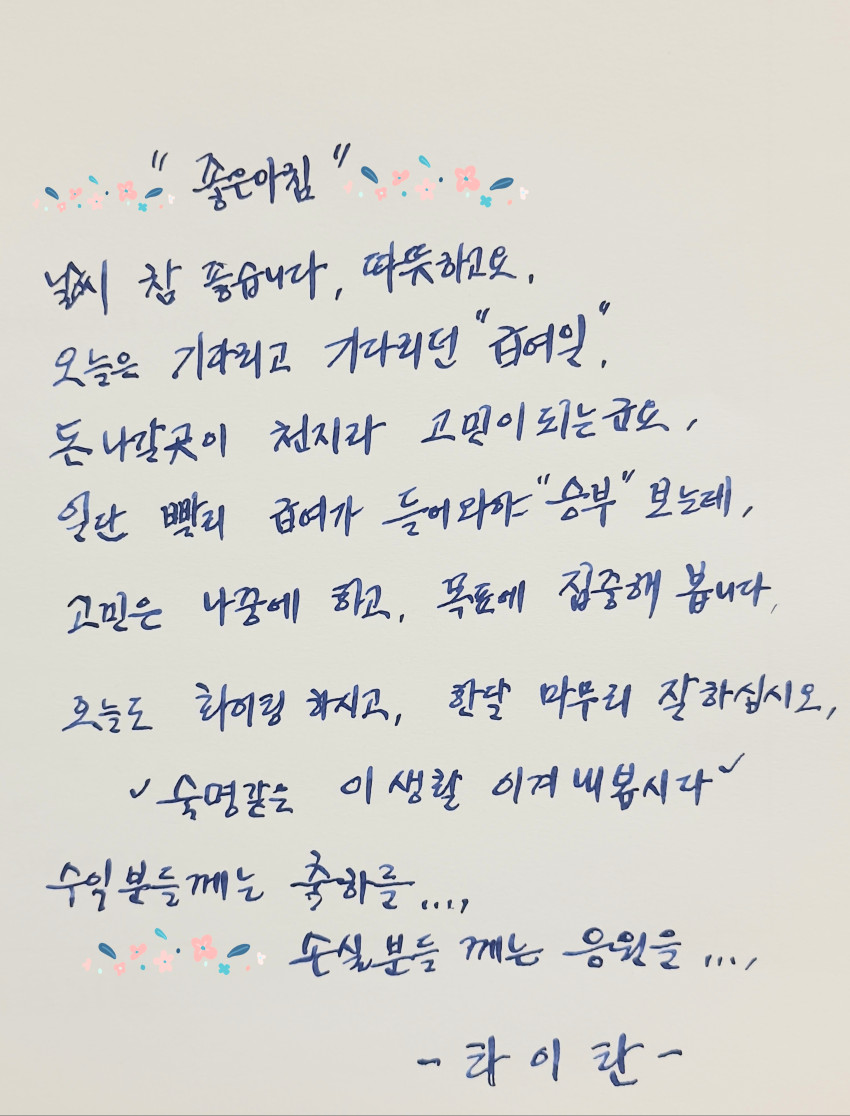 " 좋은아침 "
날씨 참 좋습니다, 따뜻하고요.
오늘은 기다리고 기다리던 "급여일".
돈 나갈곳이 천지라 고민이 되는군요,
일단 빨리 급여가 들어와야 "승부" 보는데,
고민은 나중에 하고, 목표에 집중해 봅니다,
오늘도 화이팅 하시고, 한달 마무리 잘하십시오,
✓ 숙명같은 이 생활 이겨 내봅시다 ✓
수익분들께는 축하를...,
손실분들 께는 응원을 ...,
- 타이탄 -